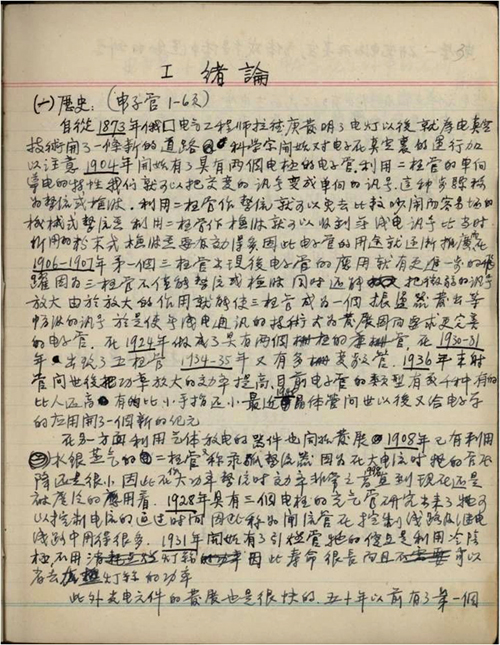 3
I 緒論
(一)歷史:(电子管1-6頁)
自從1873年俄囗电气工程师拉德庚發明了电灯以後就為电真空
技術開了一條新的道路 科学家開始对电子在真空裏的運行加
以注意 1904年開始有了具有兩個电極的电子管.利用二極管的单向
導电的特性我们就可以把交变的訊号变成单向的訊号.這种步驟称
為整流或檢波.利用二極管作整流就可以免去比較吵鬧而容易坏的
机械式整流器 利用二極管作檢波就可以收到無线电訊号比当时
所用的粉末式檢波器要有効得多因此电子管的用途就逐渐推廣
1906-1907年第一個三極管出現後电子管的應用就有更進一步的飛
躍因為三極管不僅能整流或檢波同时还能把微弱的訊号
放大由於放大的作用就能使三極管成為一個振盪器產出等
幅波的訊号於是使無线电通訊的技術大為發展因而要求更完善
的电子管.在1924年做成了具有兩個柵極的管.在1930-31
年出現了五極管 1934-35年又有多柵变数管.1936年束射
管问世後把功率放大的効率提高.目前电子管的類型有数千种有的
比人还高有的比小手指还小最近晶体管问世以後又给电子学
的应用開了一個新的纪元
在另一方面利用气体放电的器件也開始發展 1908年已有利用
水银蒸气的二極管又称汞弧整流器因為在大电流时牠的管压
降还是很小因此在大功率整流时効率非常之高直到現在还是
被廣泛的應用着.1928年具有三個电極的充气管研究出来了牠可
以控制电流的通过时间因此称為閘流管在控制线路及继电
线路中用得很多.1931年開始有了引燃管牠的優点是利用冷陰
極,不用灯絲因此寿命很長而且可以
省去灯絲的功率
此外光电元件的發展也是很快的.五十年以前有了第一個